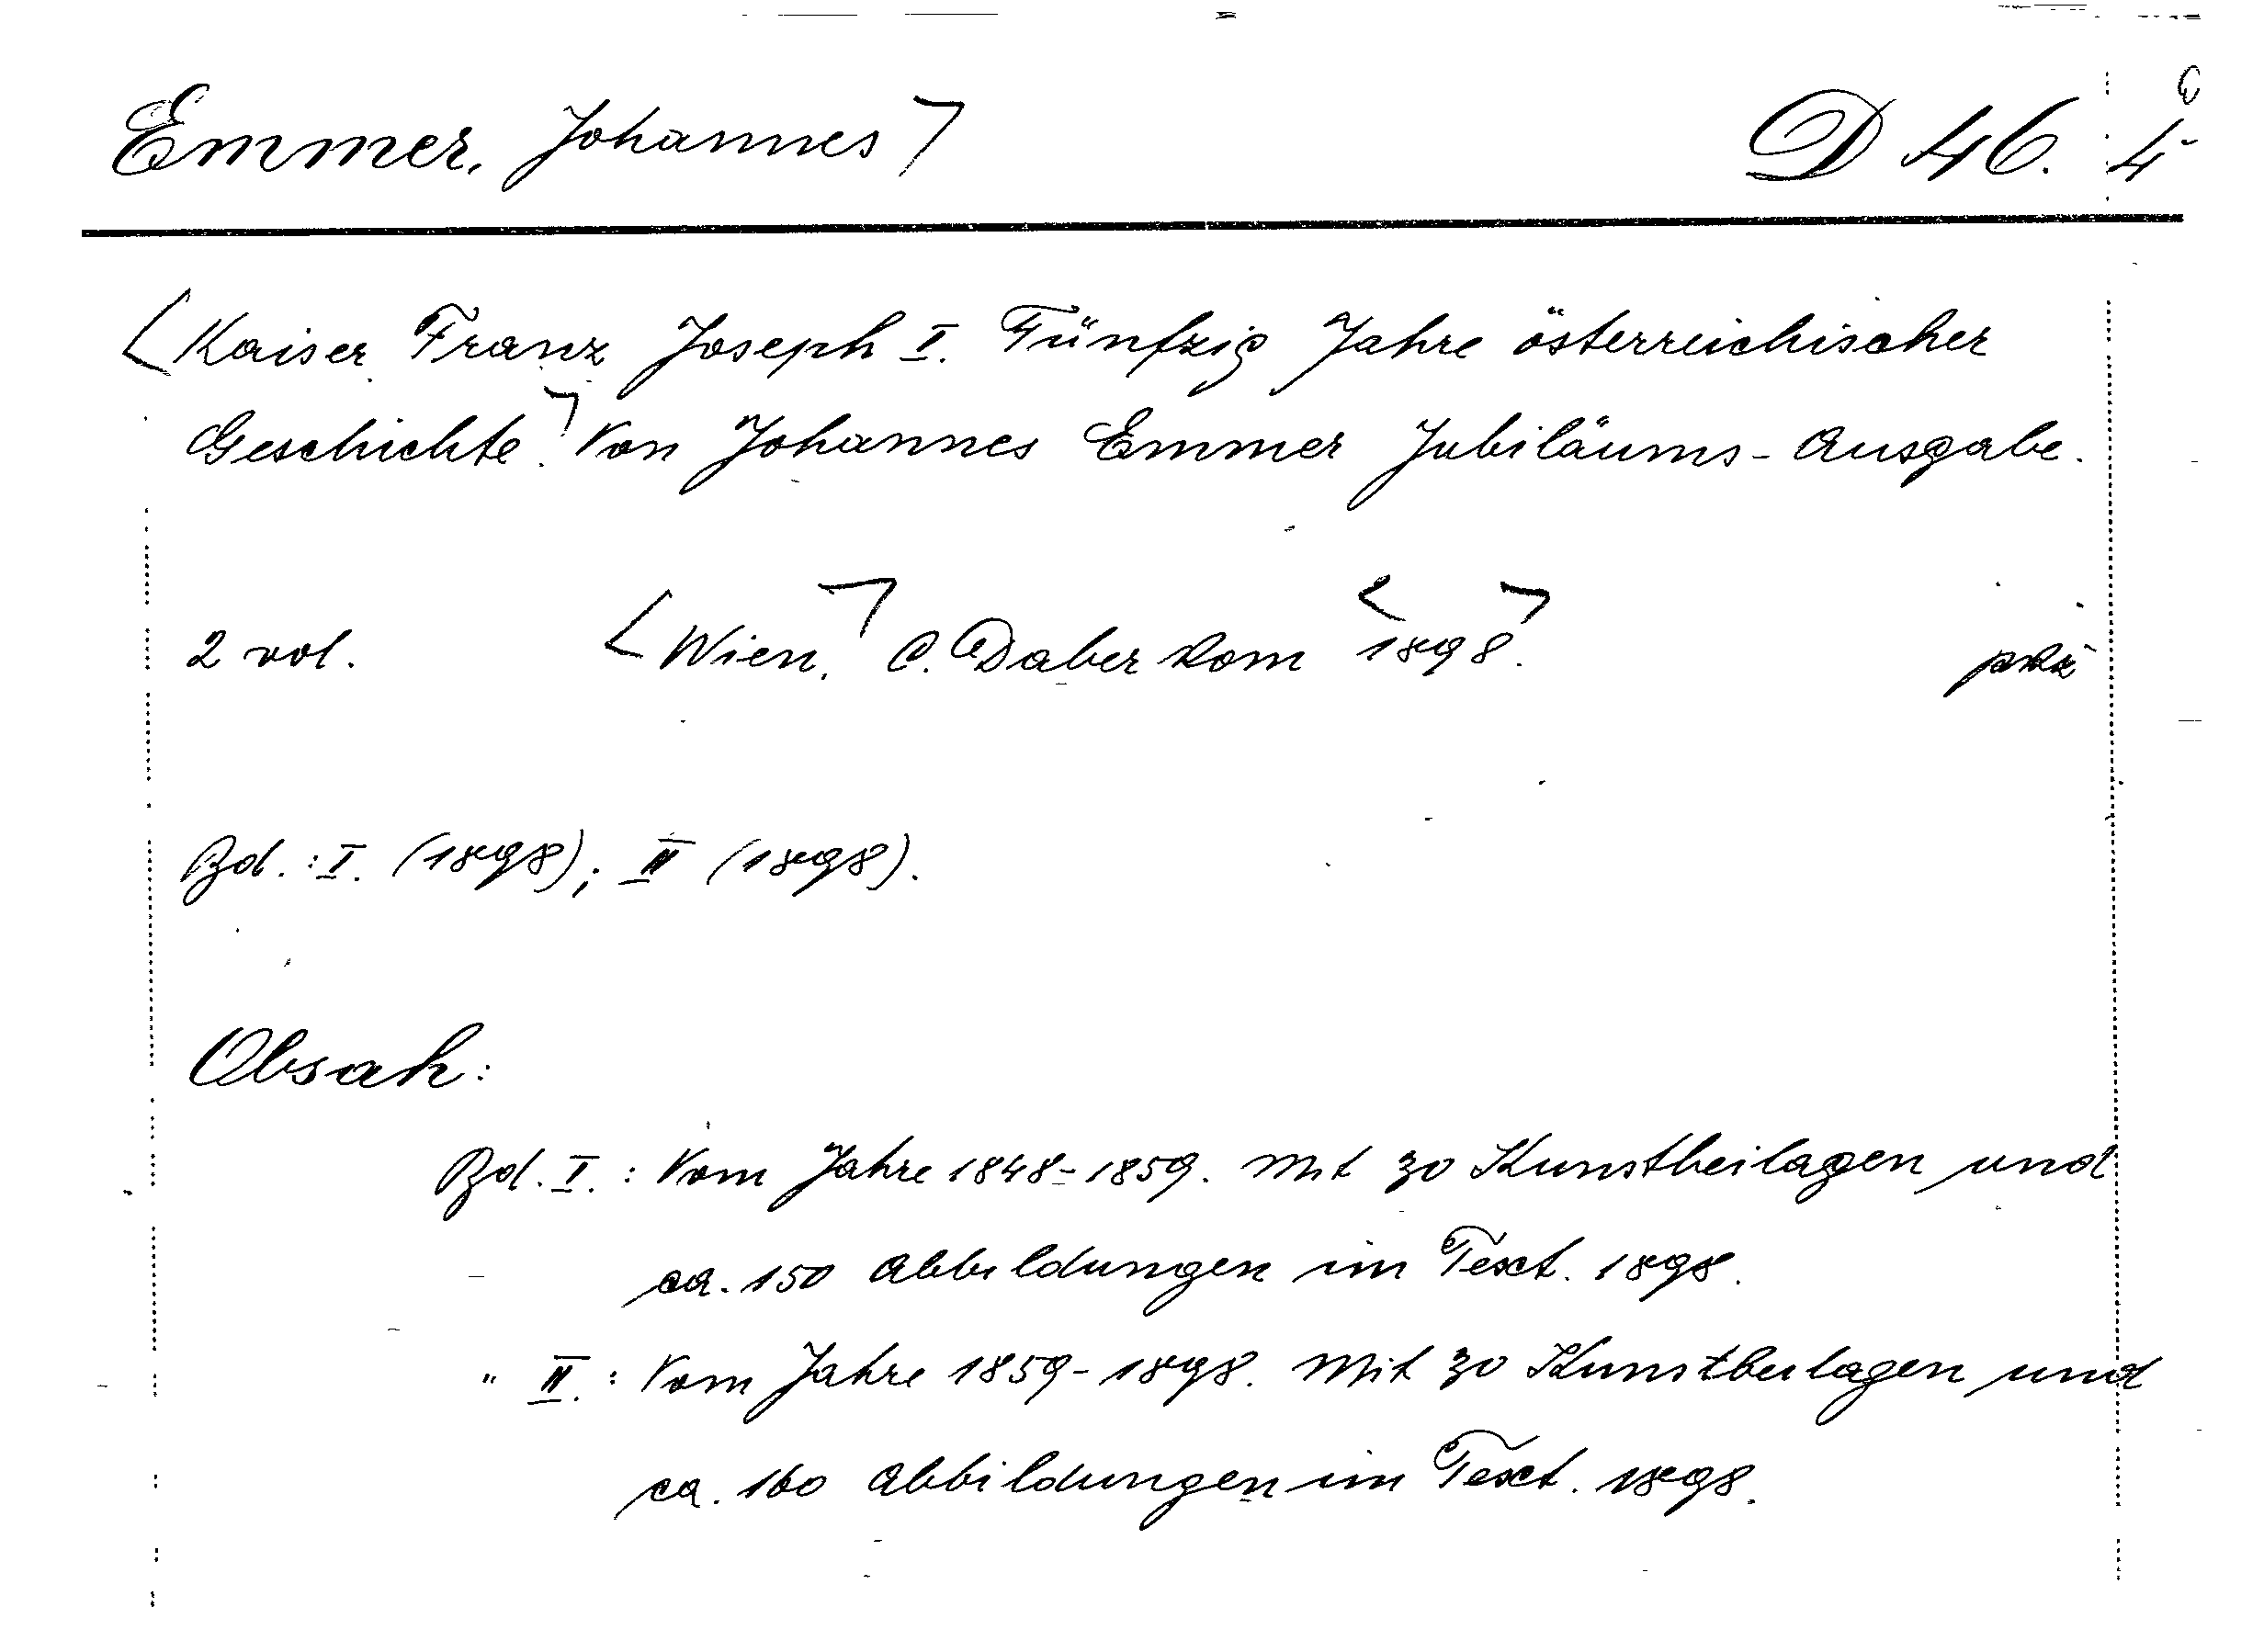 Emmer, Johannes D 46. 4
Kaiser Franz Joseph I. Fünfzig Jahre österreichischer
Geschichte. Von Johannes Emmer Jubiläums-Ausgabe.
2 vol. Wien, C. Daberkom 1898.
Bd.: I. (1898); II (1898).
Obsah:
Bd. I.: Vom Jahre 1848-1859. Mit 30 Kunstbeilagen und
ca. 150 Abbildungen im Text. 1898.
" II.: Vom Jahre 1859-1898. Mit 30 Kunstbeilagen und
ca. 160 Abbildungen im Text. 1898.